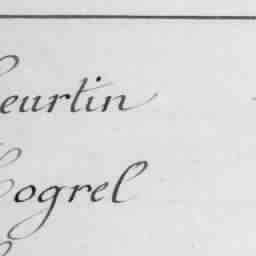 eurtin
ogrel